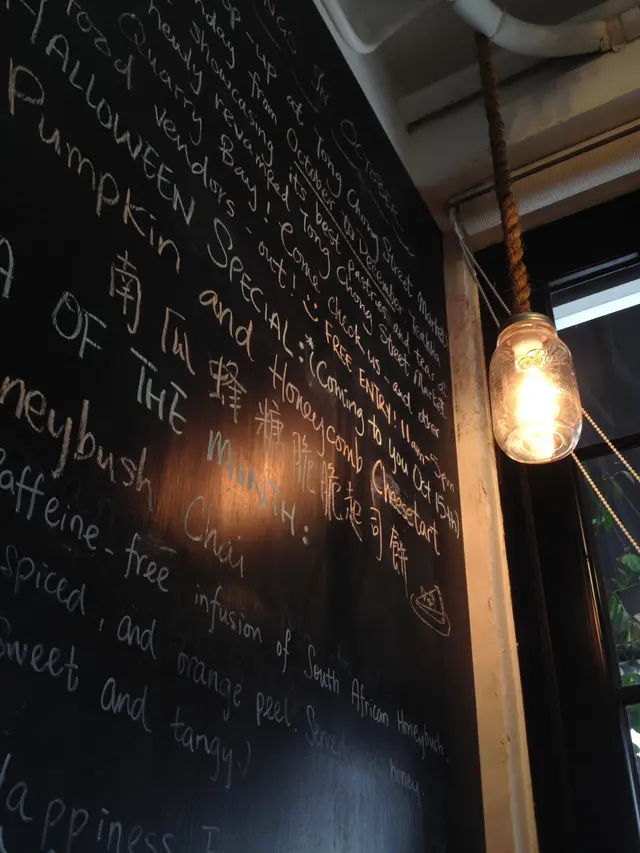 NGS IN OCTOBER
OP-UP at Tong Chong Street Market!
nday from October to December Teakha
showcasing its best pastries and teas @
newly revamped Tong Chong Street Market
Quarry Bay! Come check us - and other
food vendors - out! FREE ENTRY! 11am-5pm
HALLOWEEN SPECIAL: (Coming to you Oct 15th)
Pumpkin and Honeycomb Cheesetart
南瓜蜂糖脆脆起司餅
A OF THE MONTH:
neybush Chai
caffeine-free infusion of South African Honeybush.
spiced, and orange peel. Served honey.
Sweet and tangy.)
Happiness I